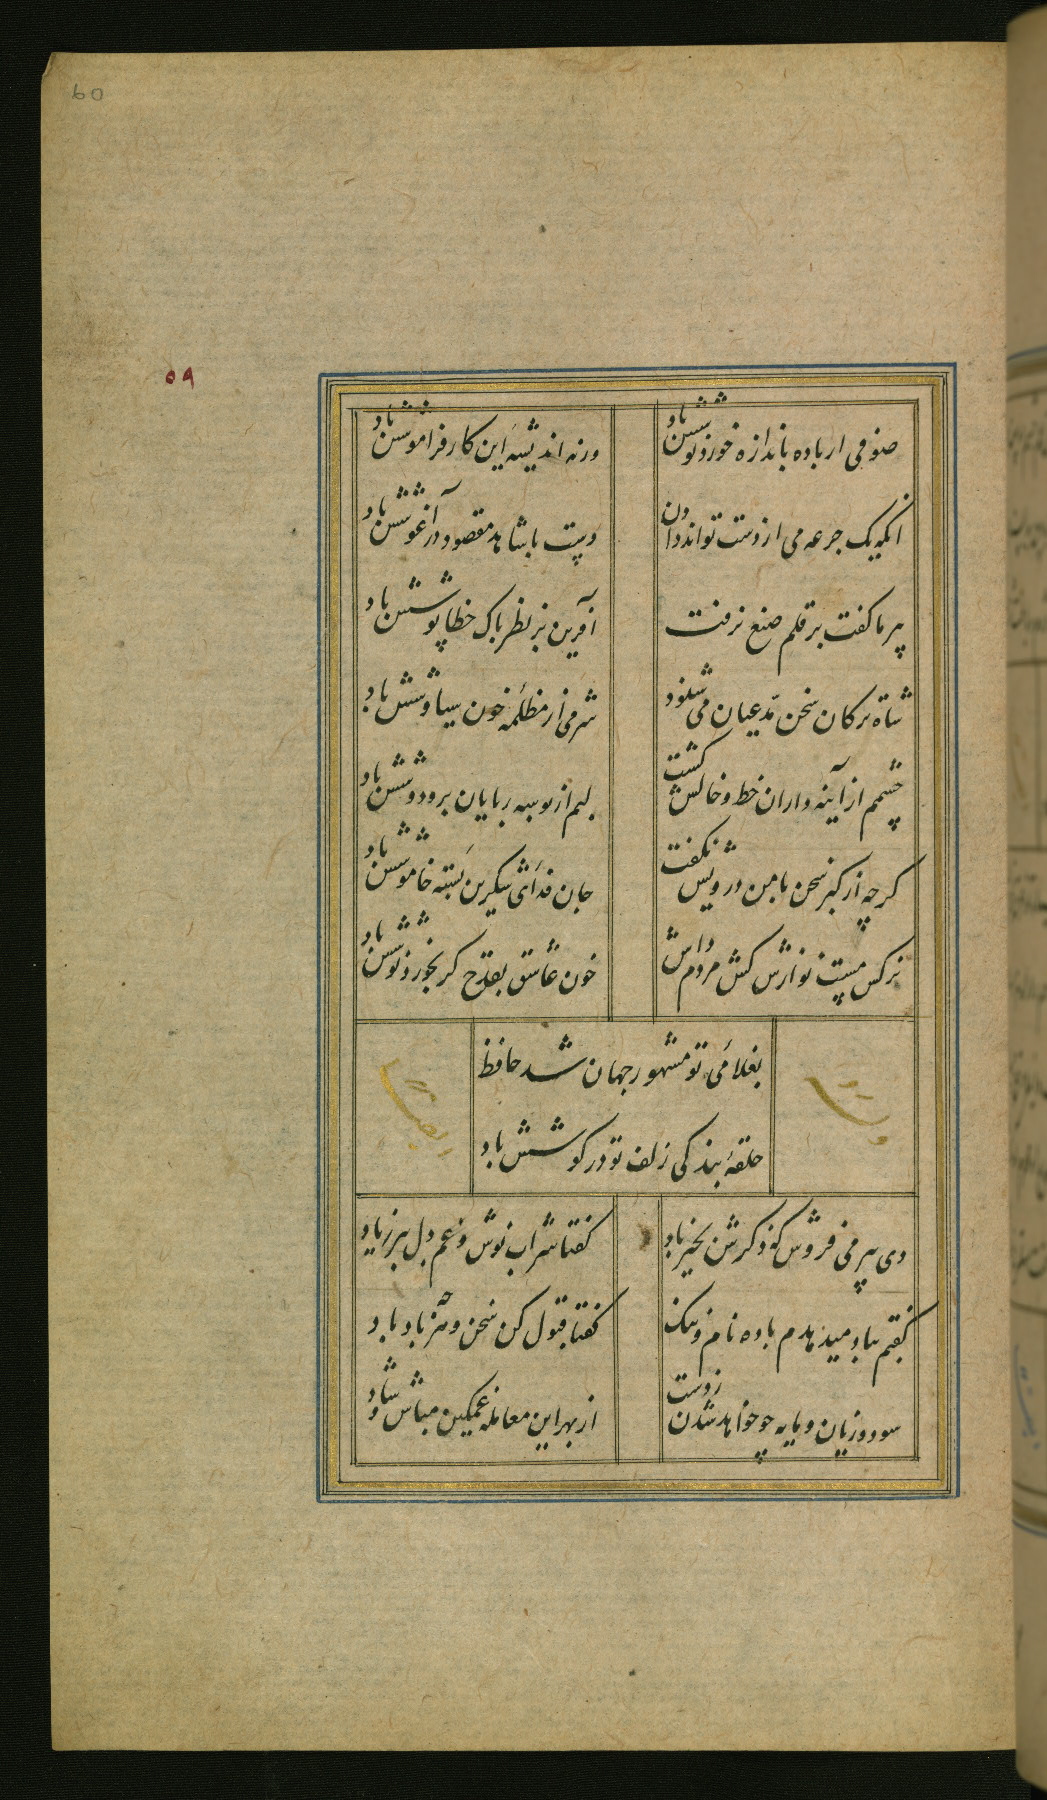 60
۵۹
صوفی ار باده باندازه خورد نوشش باد
ورنه اندیشهٔ این کار فراموشش باد
انکه یک جرعه می از دست تواند دادن
دست با شاهد مقصود در آغوشش باد
پیر ما کفت بر قلم صنع نرفت
آفرین بر نظر پاک خطا پوشش باد
شاه ترکان سخن مدعیان می شنود
شرمی از مظلمهٔ خون سیاوشش باد
چشمم از آینه داران خط و خالش کشت
لبم از بوسه ربایان بر و دوشش باد
کرچه از کبر سخن با من درویش نکفت
جان فدای شکرین پسته خاموشش باد
نرکس مست نوازش کش مردم دارش
خون عاشق بقدح کر بخورد نوشش باد
بغلامی تو مشهور جهان شد حافظ
حلقهٔ بندکی زلف تو در کوشش باد
دی پیر می فروش که ذکرش بخیر باد
کفتا شراب نوش و غم دل ببر ز یاد
کفتم بباد میدهدم باده نام و ننک
کفتا قبول کن سخن و هرچه باد باد
سود و زیان و مایه چو خواهد شدن ز دست
از بهر این معامله غمکین مباش و شاد